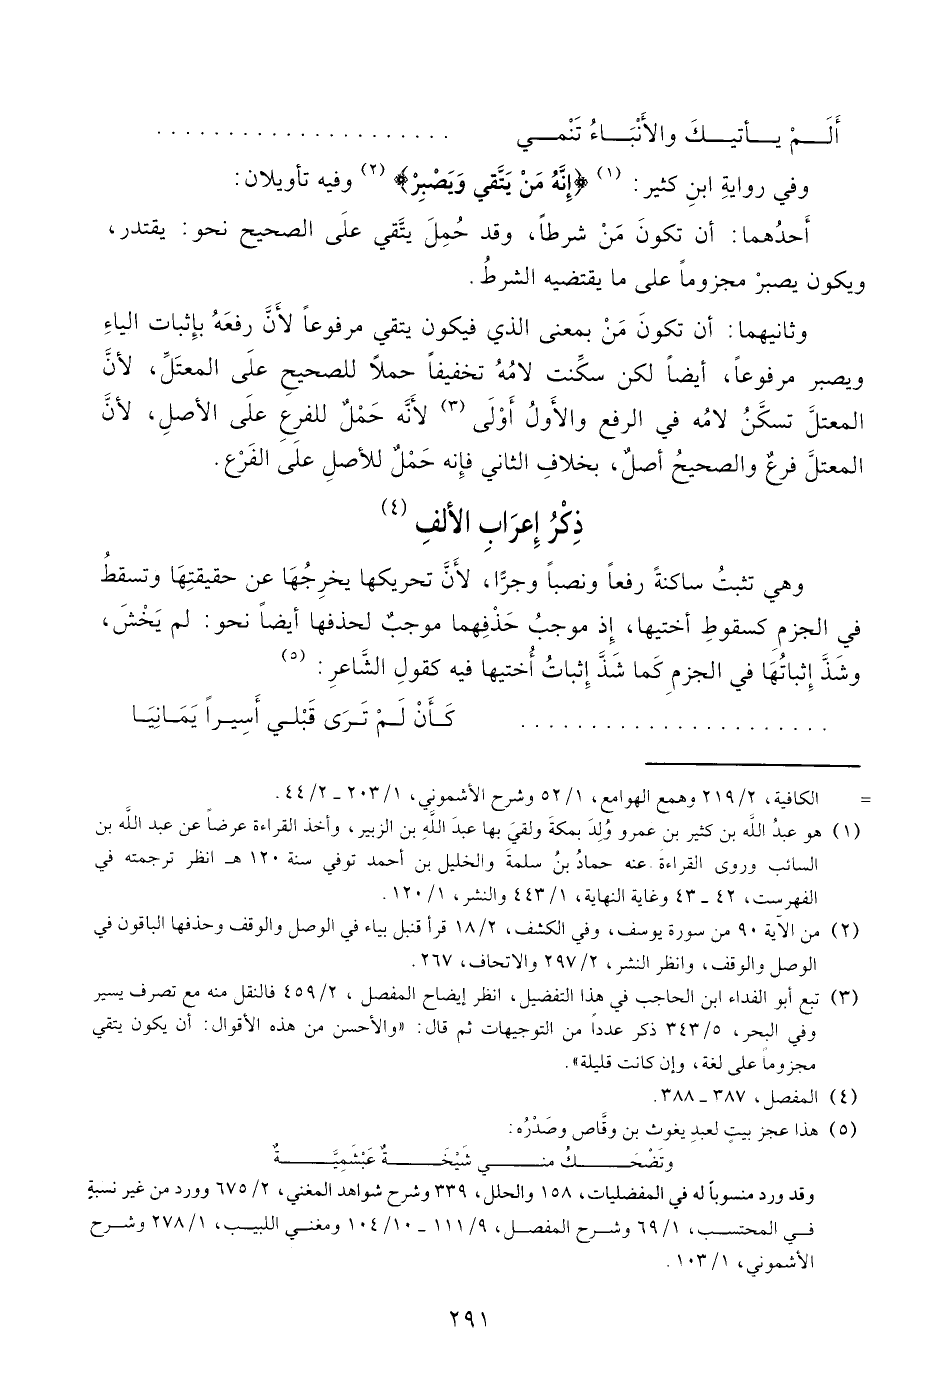 أَلَمْ يـأتيـكَ والأَنْبَـاءُ تَنْمـي . . . . . . . . . . . . . . . . . . . .
وفي روايةِ ابنِ كثير: (١) ﴿إنَّهُ مَنْ يَتَّقي وَيَصْبِرْ﴾ (٢) وفيه تأويلان:
أَحدُهما: أن تكونَ مَنْ شرطاً، وقد حُمِلَ يتَّقي علَى الصحيح نحو: يقتدر،
ويكون يصبرْ مجزوماً على ما يقتضيه الشرطُ.
وثانيهما: أن تكونَ مَنْ بمعنى الذي فيكون يتقي مرفوعاً لأَنَّ رفعَهُ بإثبات الياءِ
ويصبر مرفوعاً، أيضاً لكن سكِّنت لامُهُ تخفيفاً حملاً للصحيحِ علَى المعتَلِّ، لأنَّ
المعتلَّ تسكَّنُ لامُه في الرفع والأَولُ أَوْلَى (٣) لأنَّه حَمْلٌ للفرعِ علَى الأصلِ، لأنَّ
المعتلَّ فرعٌ والصحيحُ أصلٌ، بخلافِ الثاني فإنه حَمْلٌ للأصلِ علَى الفَرْع.
ذِكْرُ إعرَابِ الألفِ (٤)
وهي تثبتُ ساكنةً رفعاً ونصباً وجرًّا، لأَنَّ تحريكها يخرجُهَا عن حقيقتِهَا وتسقطُ
في الجزم كسقوطِ أختيها، إذ موجبُ حَذْفِهما موجبٌ لحذفها أيضاً نحو: لم يَخْشَ،
وشَذَّ إثباتُهَا في الجزمِ كَما شذَّ إثباتُ أُختيها فيه كقولِ الشَّاعرِ: (٥)
. . . . . . . . . . . . . . . . . . . . . كَـأَنْ لَـمْ تَـرَى قَبْلـي أَسِيـراً يَمَـانِيَـا
= الكافية، ٢/ ٢١٩ وهمع الهوامع، ١/ ٥٢ وشرح الأشموني، ١/ ٢٠٣ ـ ٢/ ٤٤.
(١) هو عبدُ اللَّه بن كثير بن عمرو وُلِدَ بمكةَ ولقيَ بها عبدَ اللَّهِ بن الزبير، وأخذ القراءة عرضاً عن عبد اللَّه بن
السائب وروى القراءة عنه حمادُ بنُ سلمةَ والخليل بن أحمد توفي سنة ١٢٠ هـ انظر ترجمته في
الفهرست، ٤٢ ـ ٤٣ وغاية النهاية، ١/ ٤٤٣ والنشر، ١/ ١٢٠.
(٢) من الآية ٩٠ من سورة يوسف، وفي الكشف، ٢/ ١٨ قرأ قنبل بياء في الوصل والوقف وحذفها الباقون في
الوصل والوقف، وانظر النشر، ٢/ ٢٩٧ والاتحاف، ٢٦٧.
(٣) تبع أبو الفداء ابن الحاجب في هذا التفضيل، انظر إيضاح المفصل، ٢/ ٤٥٩ فالنقل منه مع تصرف يسير
وفي البحر، ٥/ ٣٤٣ ذكر عدداً من التوجيهات ثم قال: «والأحسن من هذه الأقوال: أن يكون يتقي
مجزوماً على لغة، وإن كانت قليلة».
(٤) المفصل، ٣٨٧ ـ ٣٨٨.
(٥) هذا عجز بيتٍ لعبدِ يغوث بن وقَّاص وصَدْرُه:
وتَضْحَــكُ منــي شَيْخَــةٌ عَبْشَمِيَّــةٌ
وقد ورد منسوباً له في المفضليات، ١٥٨ والحلل، ٣٣٩ وشرح شواهد المغني، ٢/ ٦٧٥ وورد من غير نسبةٍ
فـي المحتسـب، ١/ ٦٩ وشـرح المفصـل، ٩/ ١١١ ـ ١٠/ ١٠٤ ومغنـي اللبيـب، ١/ ٢٧٨ وشـرح
الأشموني، ١/ ١٠٣.
٢٩١